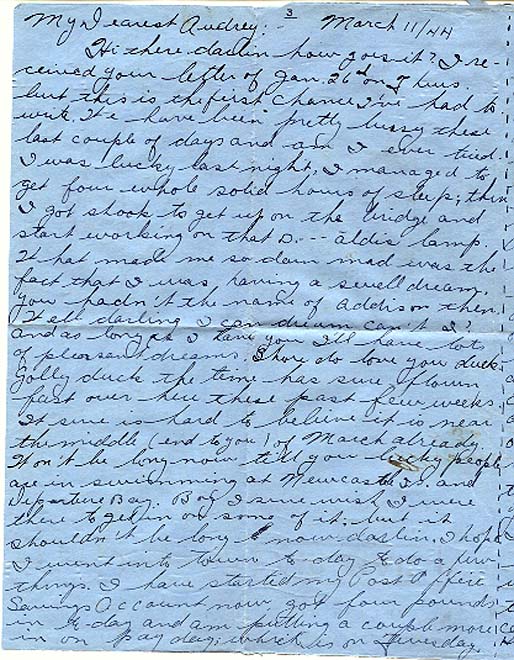 3
My Dearest Audrey. March 11/44
Hi there darlin how goes it? I re-
ceived your letter of Jan. 26th on Thurs.
but this is the first chance I've had to
write. We have been pretty bussy these
last couple of days and am I ever tired.
I was lucky last night, I managed to
get four whole solid hours of sleep; then
I got shook to get up on the bridge and
start working on that D.--- aldis lamp.
What made me so darn mad was the
fact that I was having a swell dream.
You hadn't the name of Addison then.
Well darling I can dream can't I?
and as long as I have you I'll have lots
of pleasent dreams. Shore do love you duck.
Golly duck the time has sure flown
fast over here these past few weeks.
It sure is hard to believe it is near
the middle (end to you) of March already.
Won't be long now till you lucky people
are in swimming at Newcastle Is. and
Departure Bay. Boy I sure wish I were
there to get in on some of it, but it
shouldn't be long now darlin, I hope.
I went into town to-day to do a few
things. I have started my Post Office
Savings Account now, got four pounds
in to-day and am putting a couple more
in on pay day; which is on Tuesday.